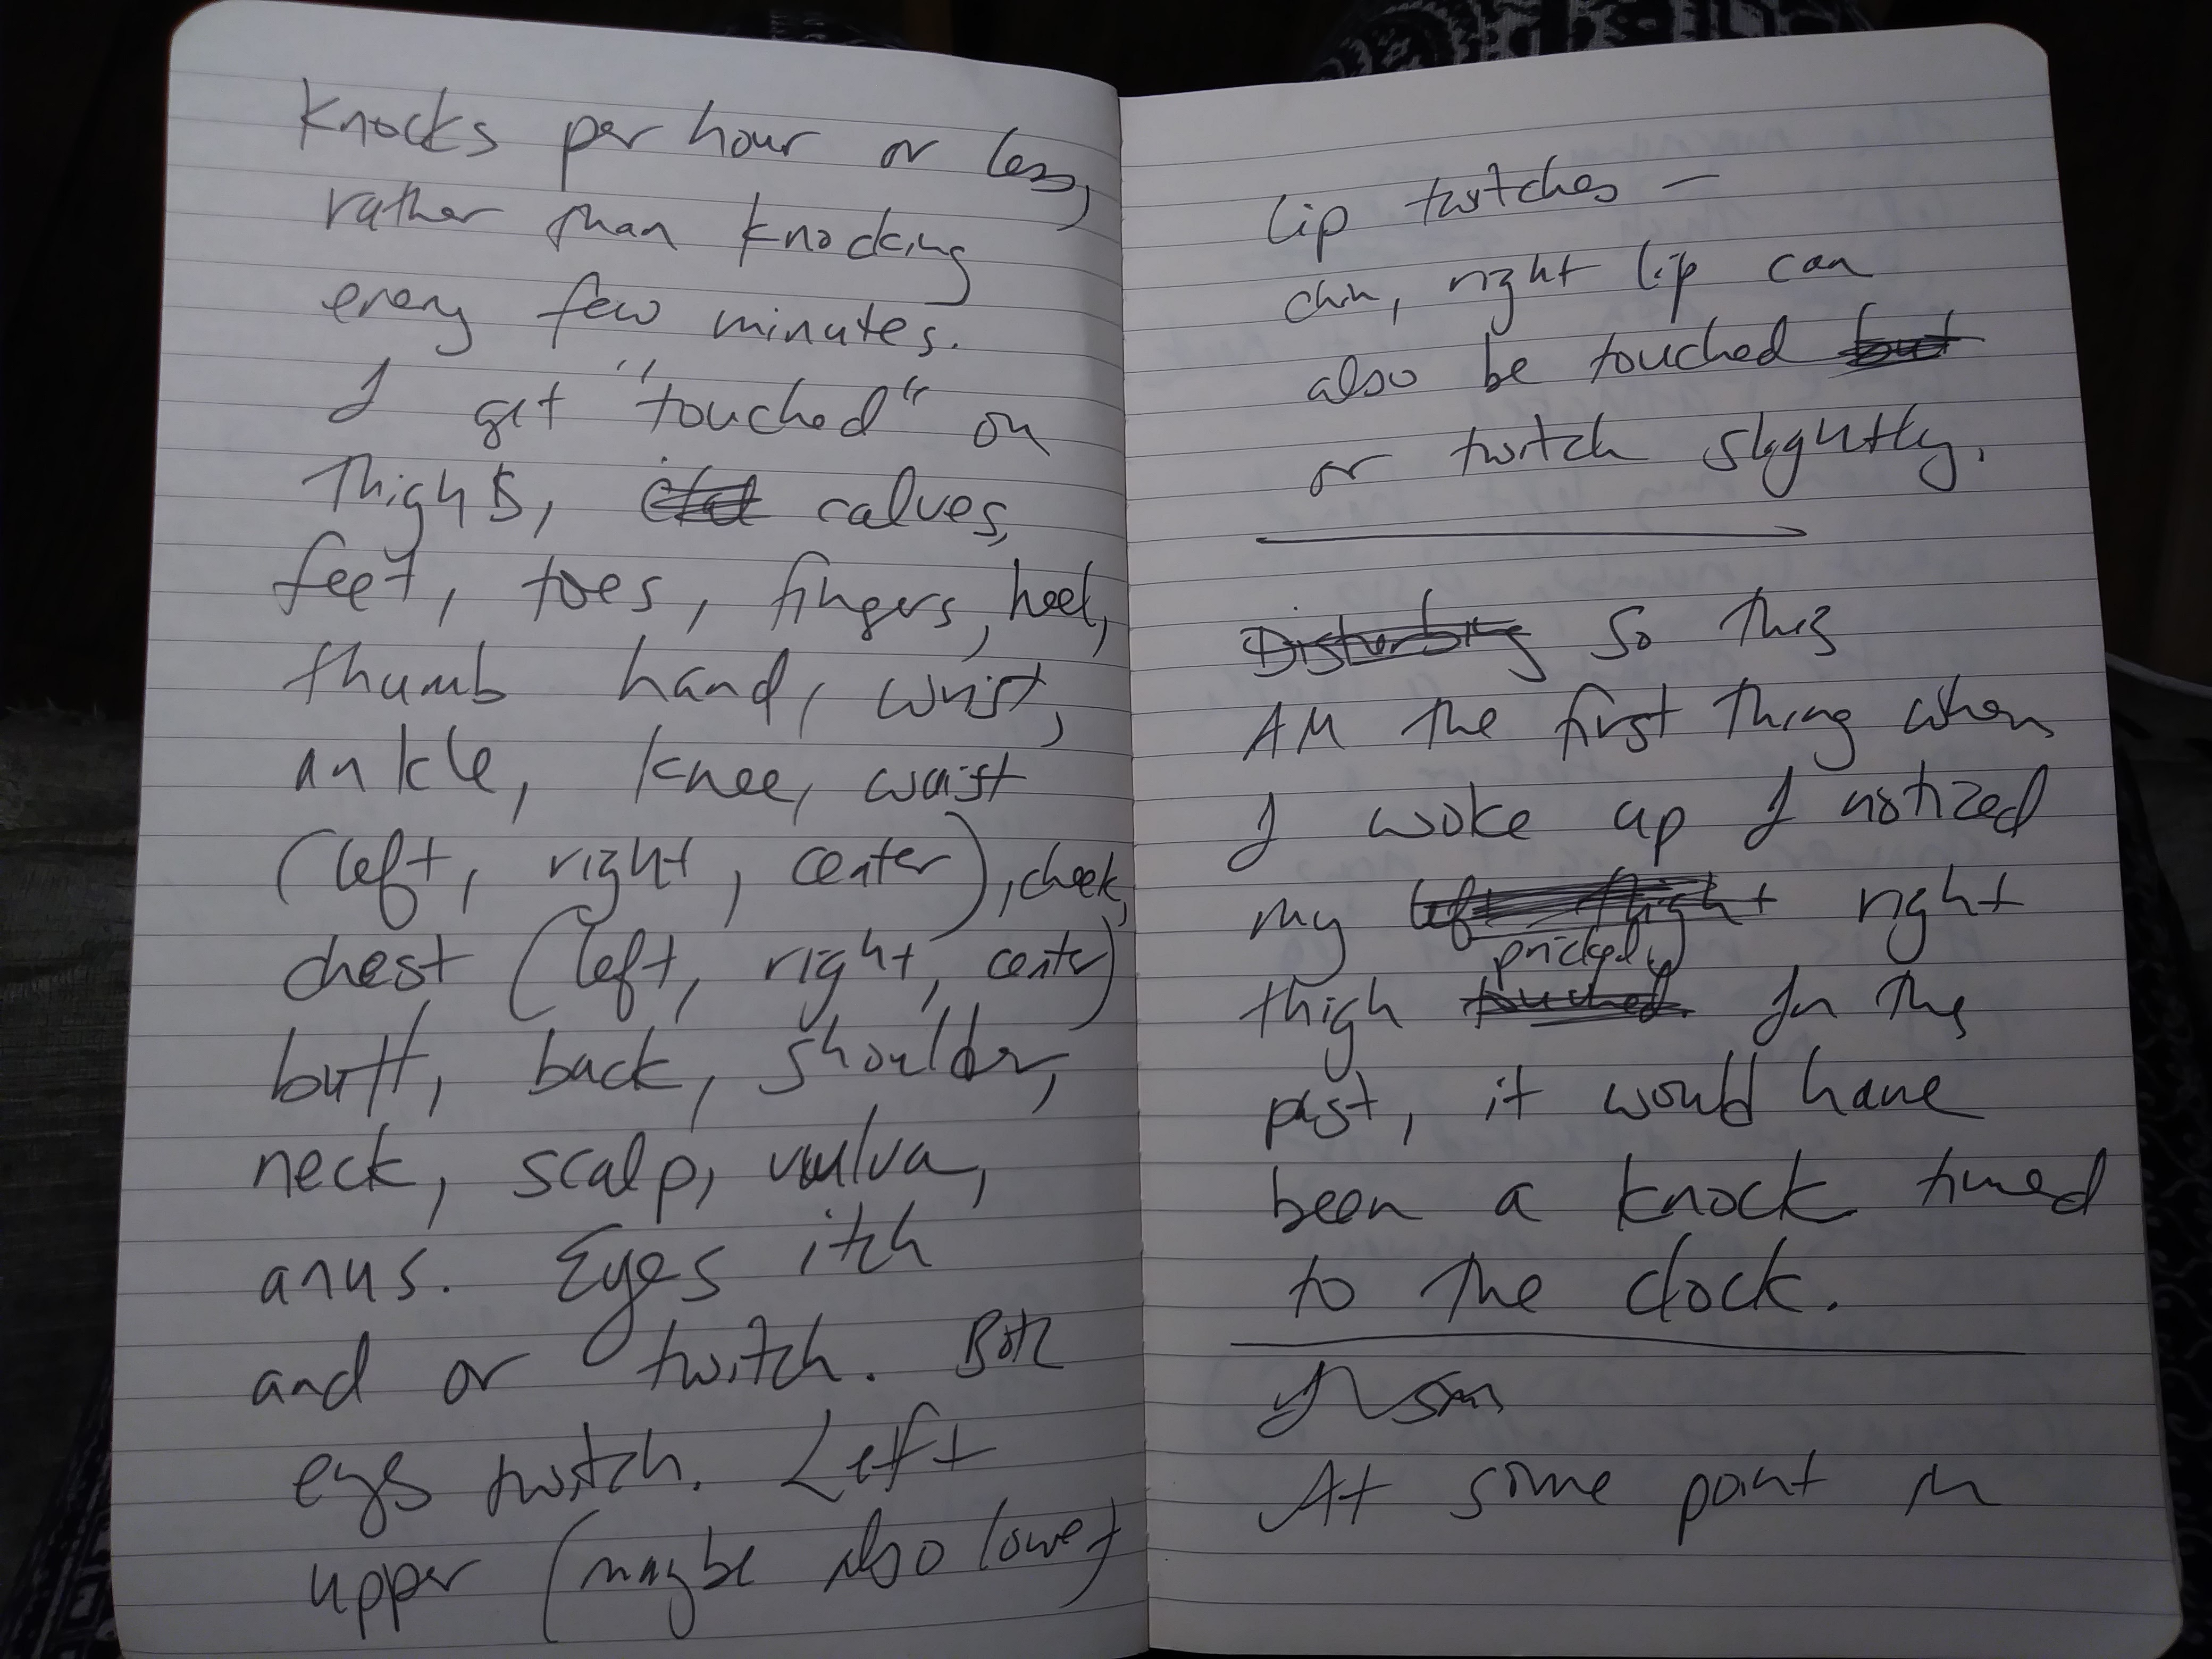 knocks per hour or less,
rather than knocking
every few minutes.
I get "touched" on
thighs, calves,
feet, toes, fingers, heel,
thumb hand, wrist,
ankle, knee, waist
(left, right, center), cheek,
chest (left, right, center)
butt, back, shoulder,
neck, scalp, vulva,
anus. Eyes itch
and or twitch. Both
eyes twitch. Left
upper (maybe also lower)
lip twitches —
chin, right lip can
also be touched but
or twitch slightly.
Disturbing So this
AM the first thing when
I woke up I notized
my left thight right
prickely
thigh touched. In the
past, it would have
been a knock timed
to the clock.
At some point in